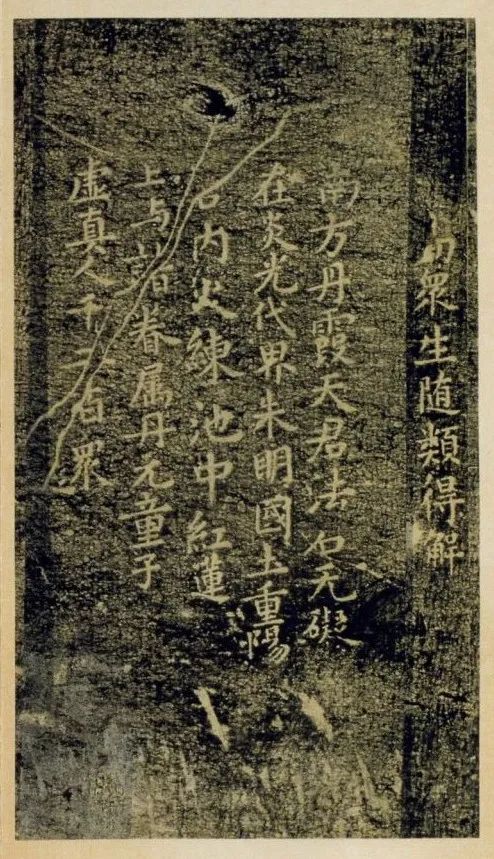 切衆生随類得解
南方丹霞天君法名无礙
在炎光代界朱明國土重陽
名内火練池中紅蓮
上与諸眷属丹元童子
虚真人千二百眾